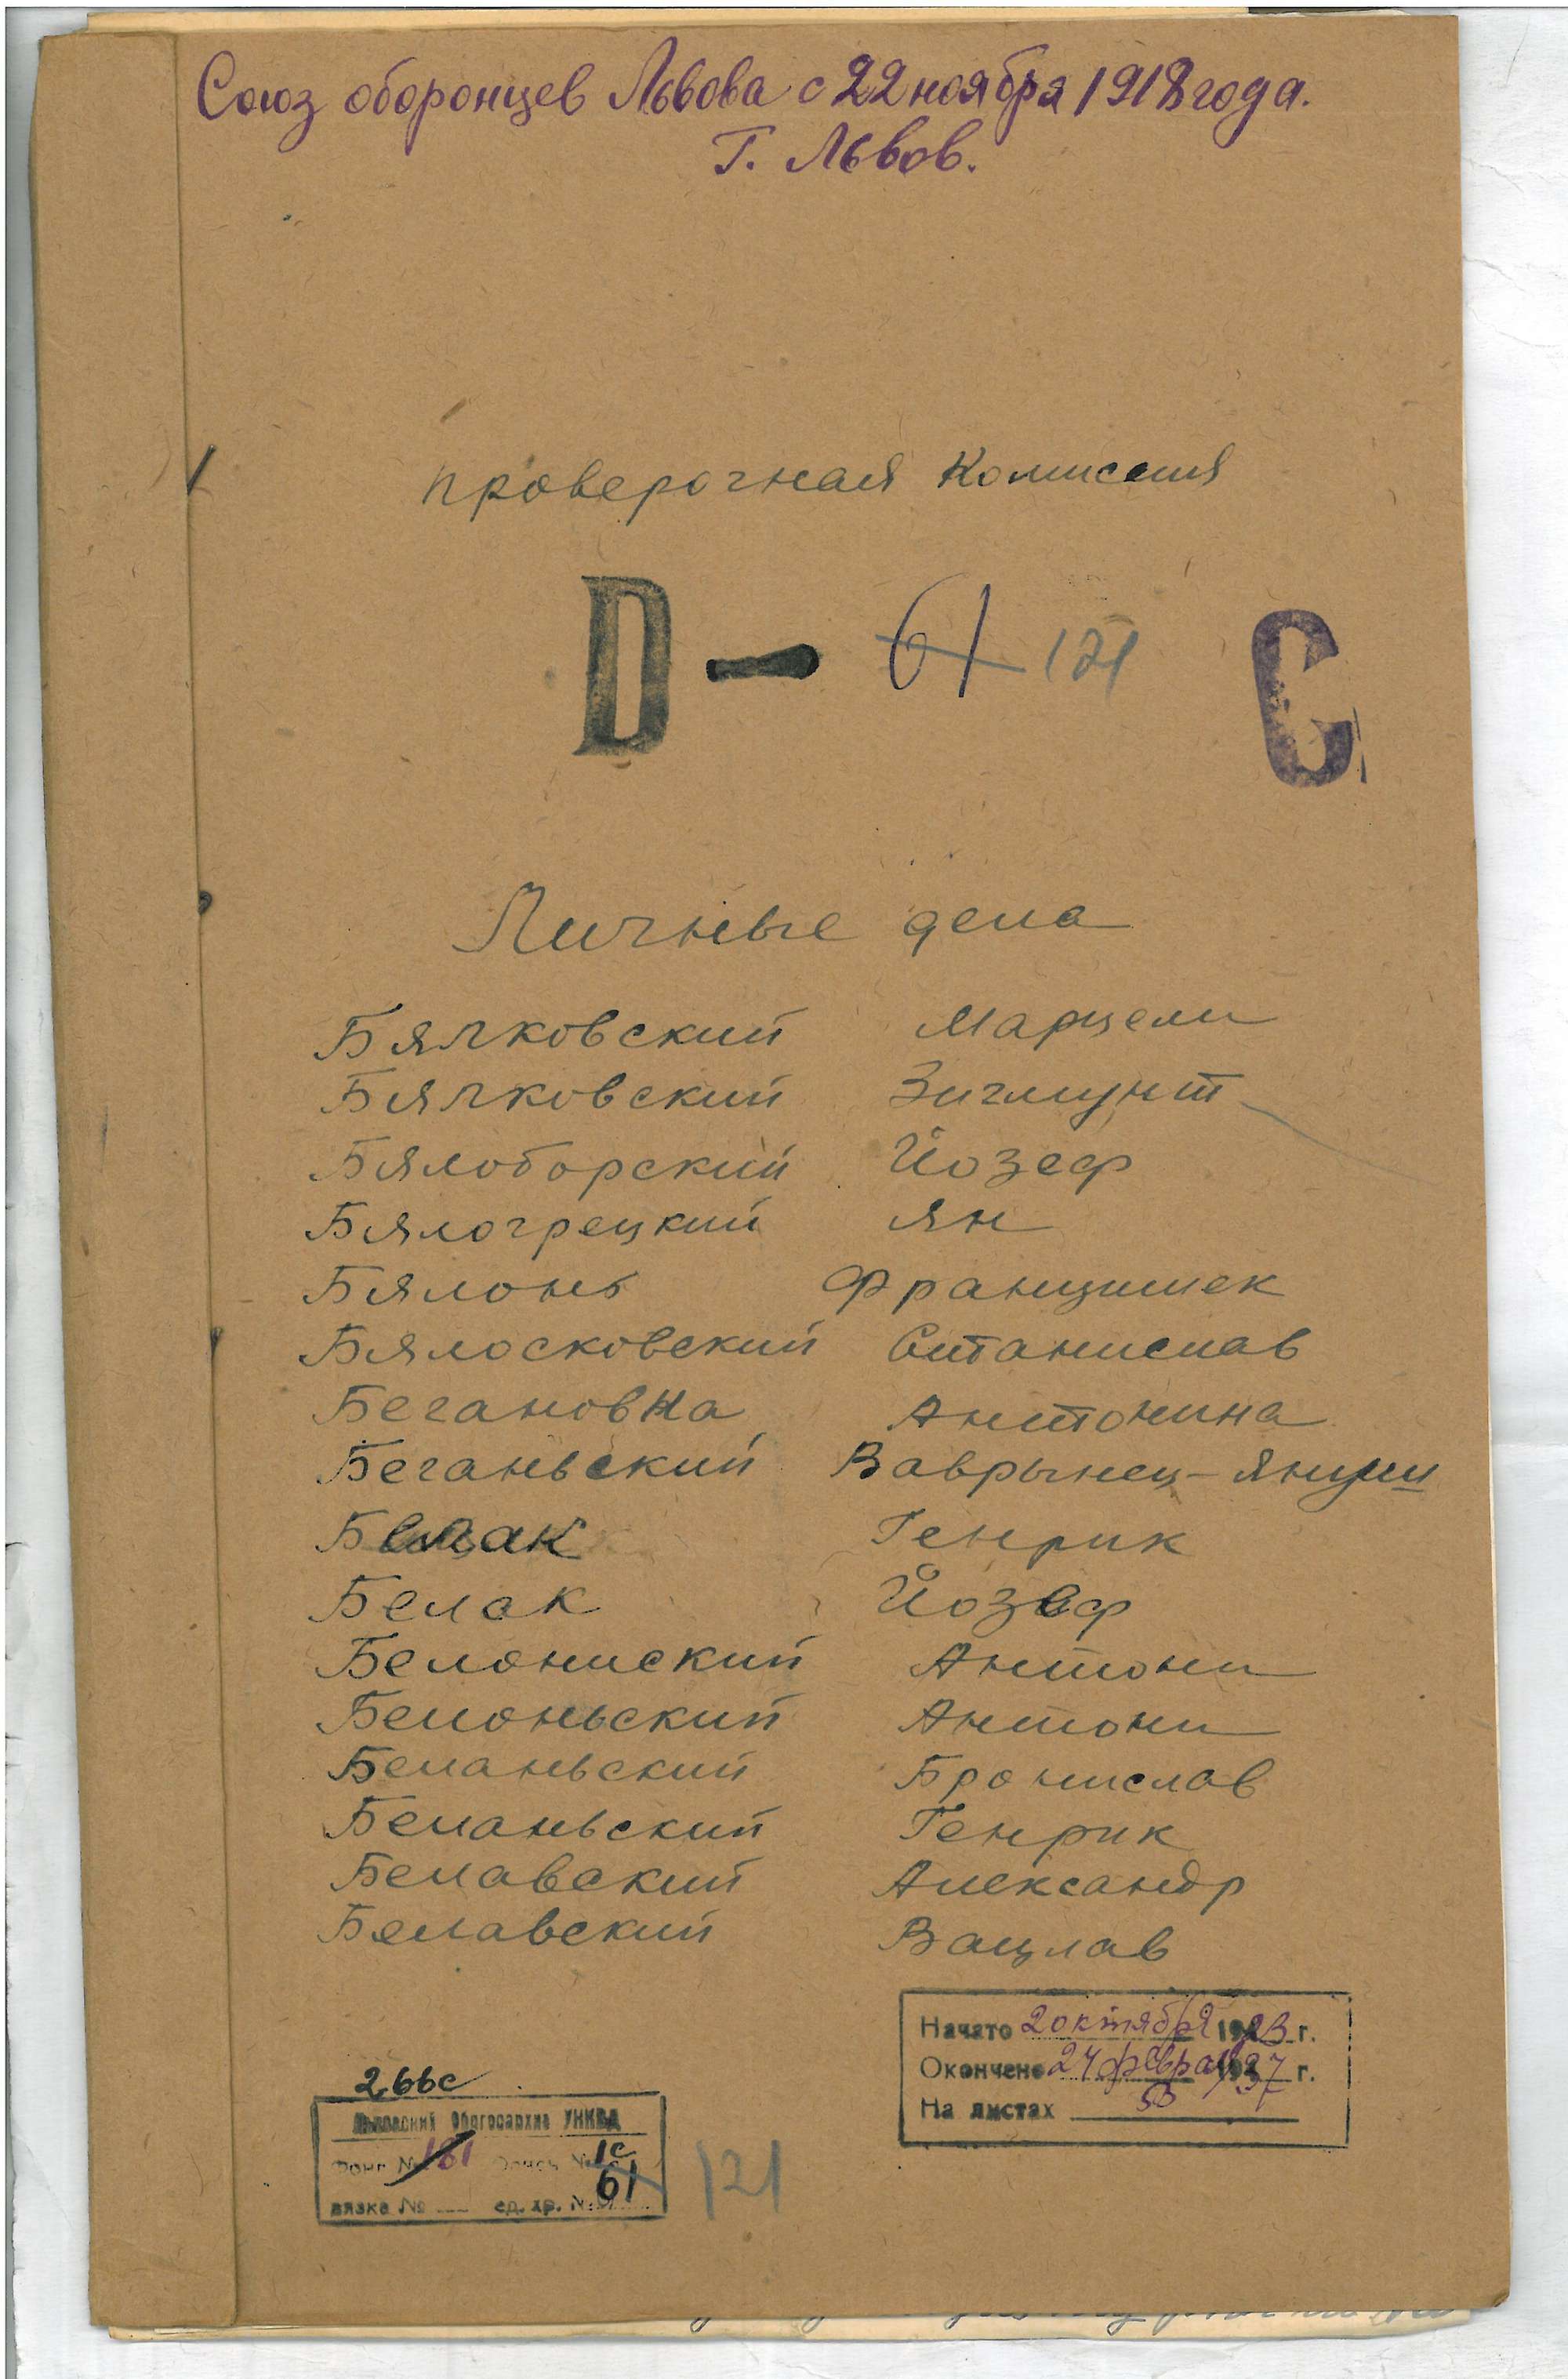 Союз оборонцев Львова с 22 ноября 1918 года.
Г. Львов.
проверочная Комиссия
D – 61 121 С
Личные дела
Бялковский Марцели
Бялковский Зигмунт
Бялоборский Йозеф
Бялогрецкий Ян
Бялонь Францишек
Бялосковский Станислав
Бегановна Антонина
Беганьский Ваврынец-Януш
Белак Генрик
Белак Йозеф
Белониский Антони
Белоньский Антони
Беланьский Бронислав
Беланьский Генрик
Белавский Александр
Белавский Вацлав
Начато 2 октября 1923 г.
Окончено 24 февра 1937 г.
На листах
266с
Львовский Облгосархив УНКВД
Фонд № 161 Опись № 1с
вязка № ед. хр. № 61
121